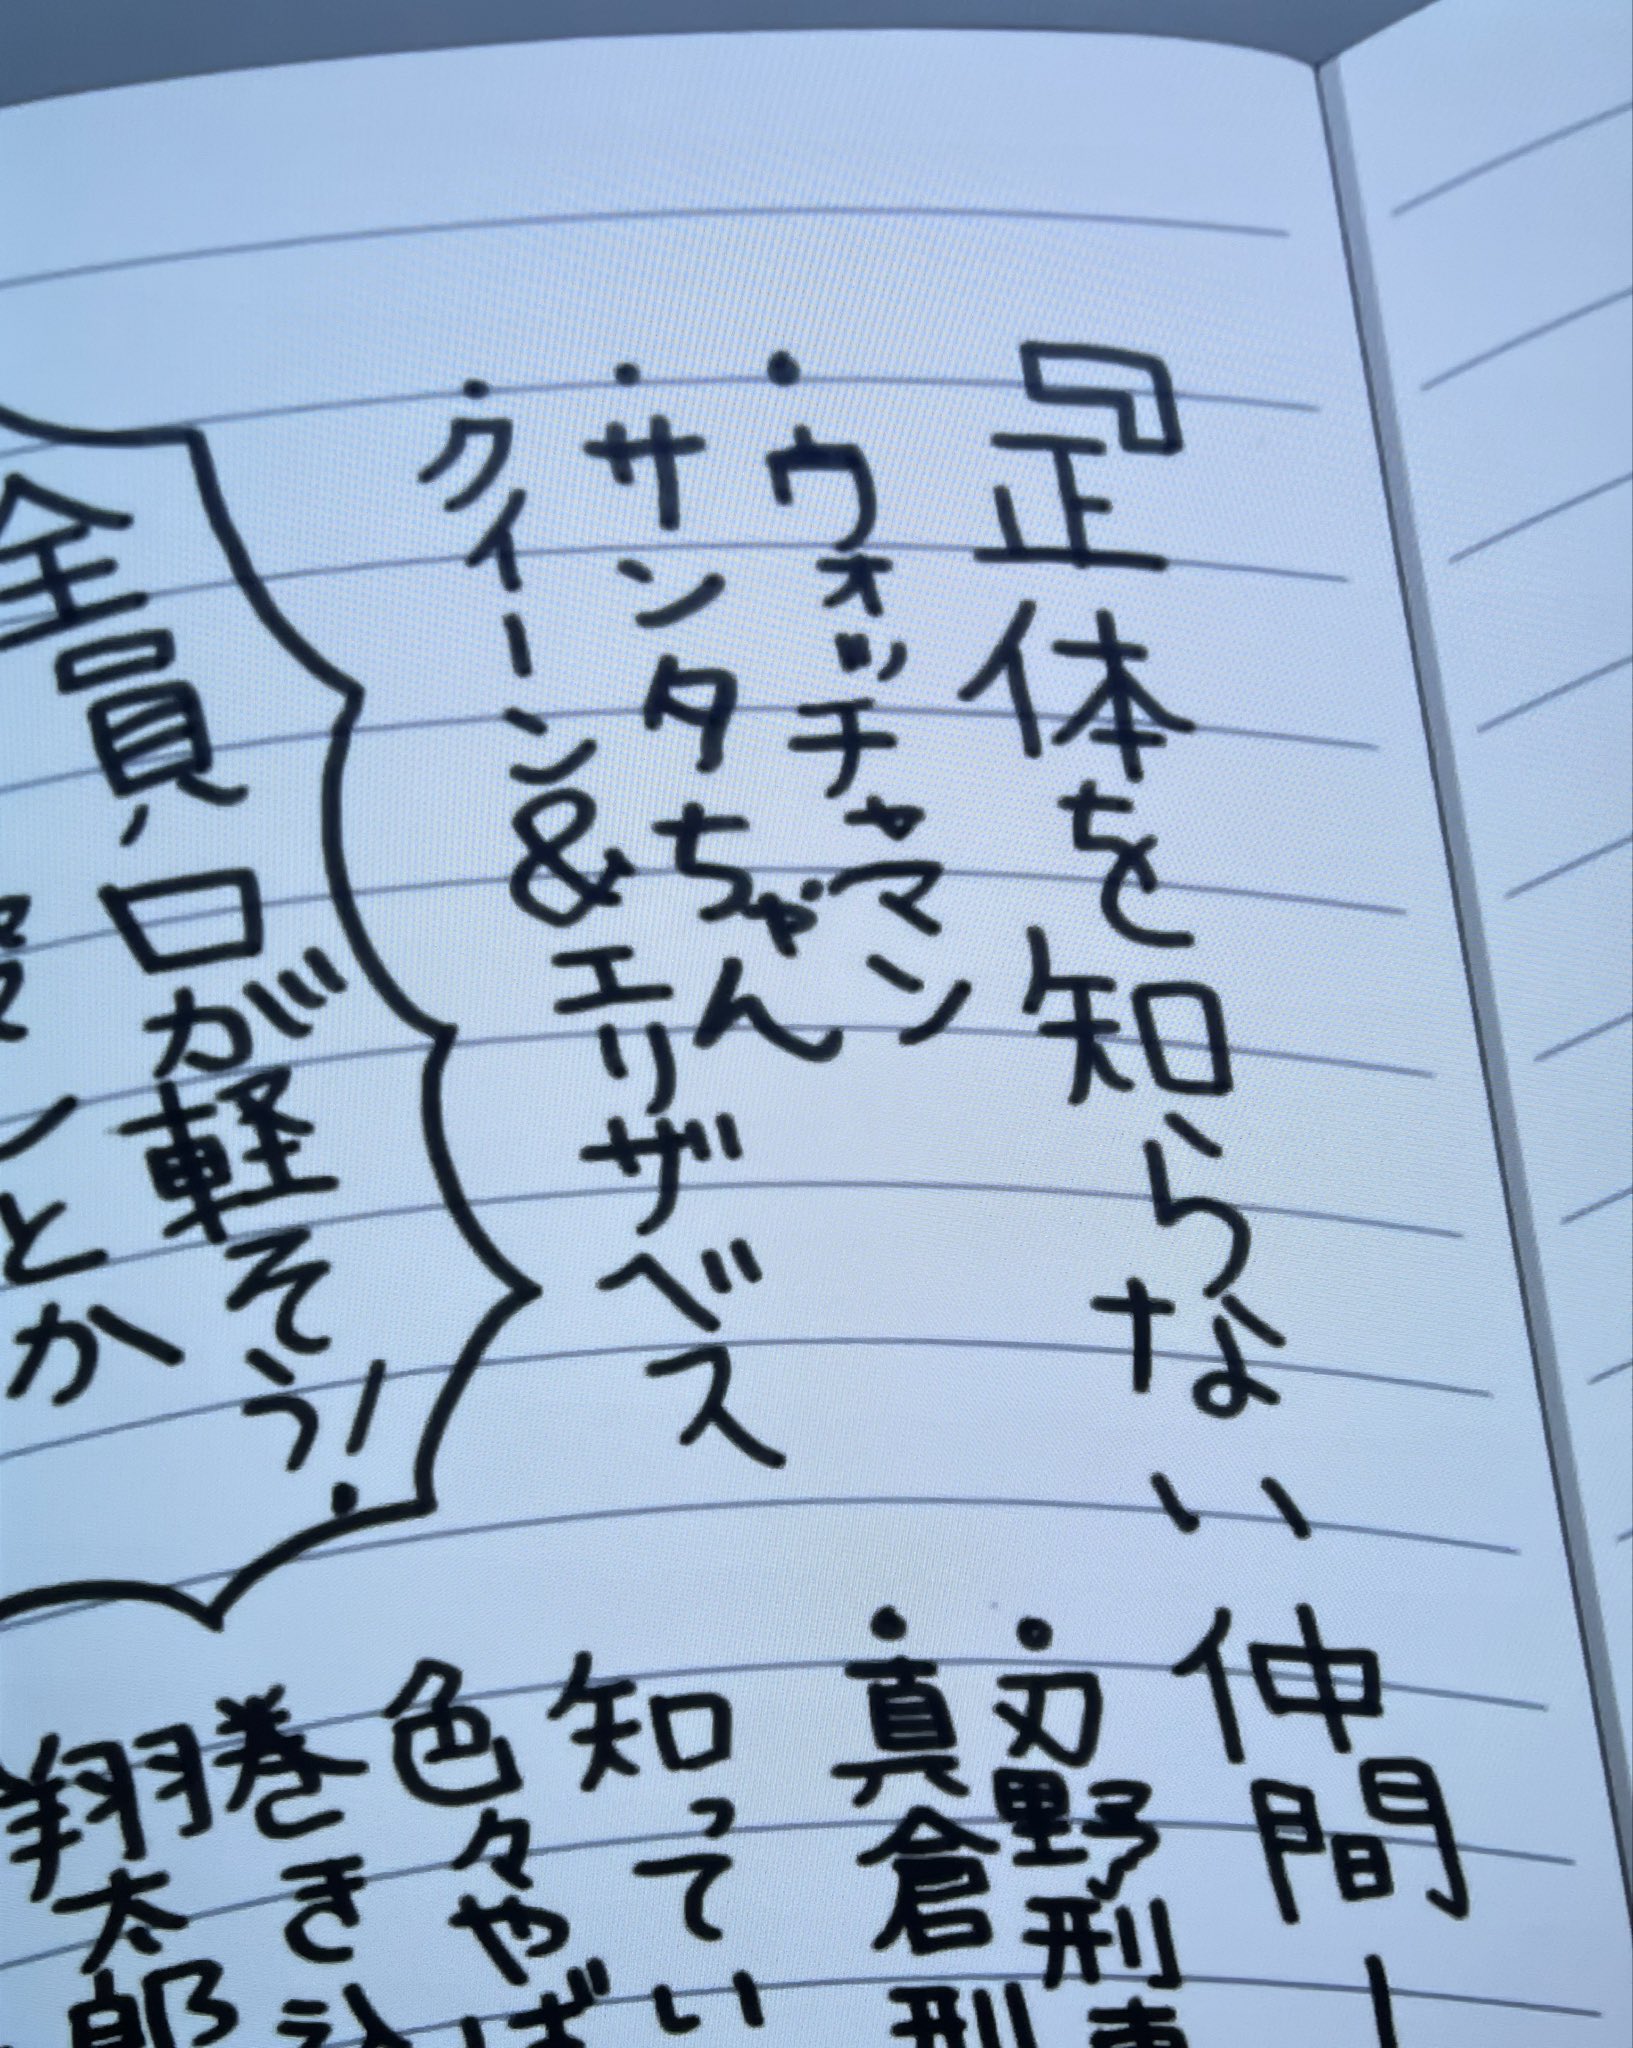 『正体を知らない仲間ー
・ウォッチャマン
・サンタちゃん
・クイーン&エリザベス
・刃野刑事
・真倉刑
知ってい
色々やば
巻き込
翔太郎
全員、口が軽そう!
とか